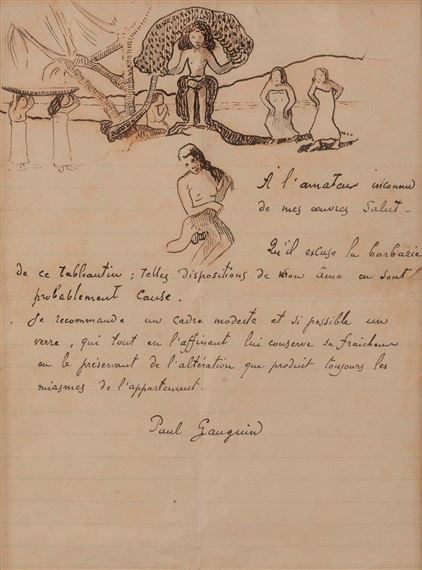 A l'amateur inconnu
de mes œuvres Salut -
Qu'il excuse la barbarie
de ce tableautin ; telles dispositions de mon âme en sont
probablement cause.
Je recommande un cadre modeste et si possible un
verre, qui tout en l'affinant lui conserve sa fraicheur
en le préservant de l'altération que produit toujours les
miasmes de l'appartement.
Paul Gauguin